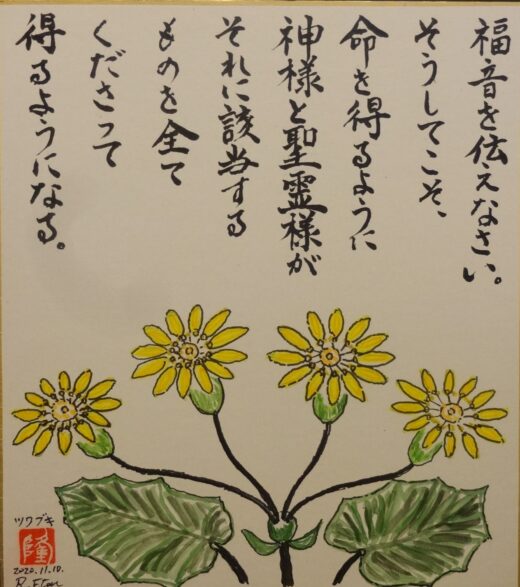 福音を伝えなさい。
そうしてこそ、
命を得るように
神様と聖霊様が
それに該当する
ものを全て
くださって
得るようになる。
ツワブキ
隆
2020.11.10.